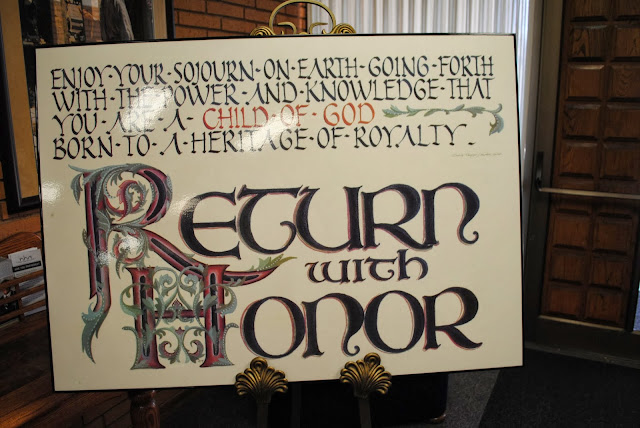 ENJOY·YOUR·SOJOURN·ON·EARTH·GOING·FORTH
WITH·THE·POWER·AND·KNOWLEDGE·THAT
YOU·ARE·A·CHILD·OF·GOD
BORN·TO·A·HERITAGE·OF·ROYALTY·
RETURN
WITH
HONOR